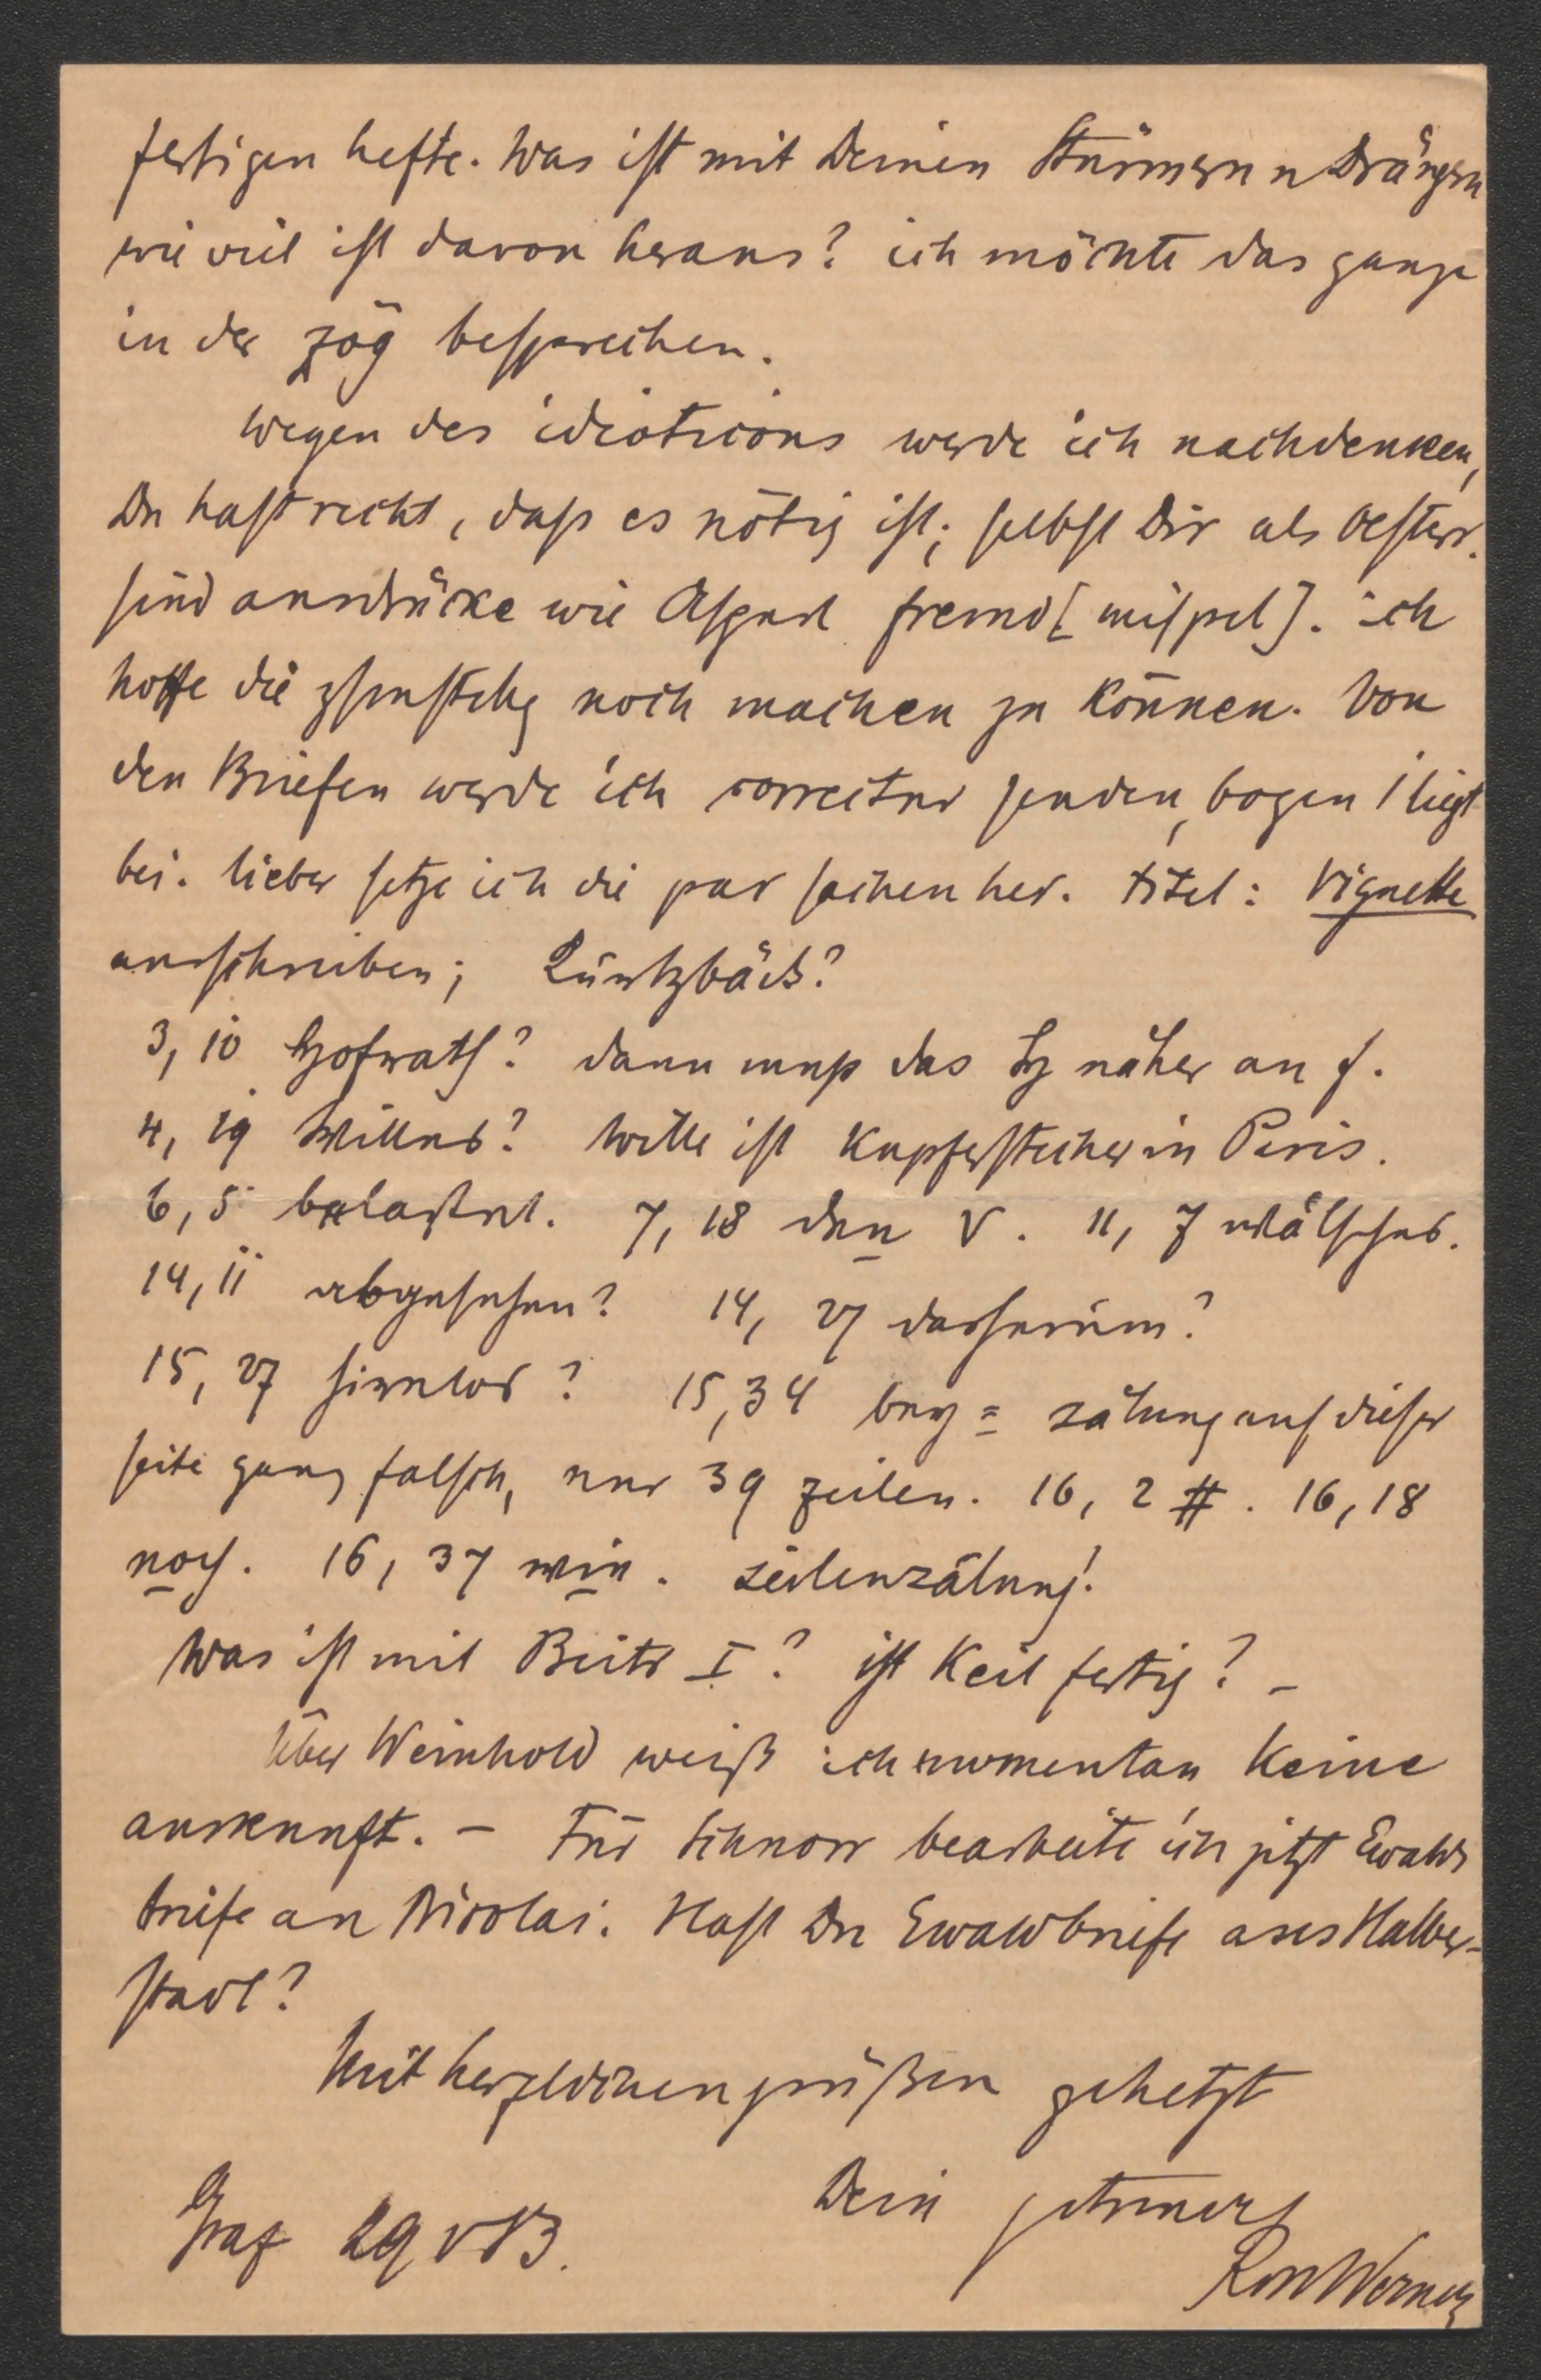 fertigen hefte. Was ist mit Deinen Stürmern u Drängern
wie viel ist davon heraus? ich möchte das ganze
in der zög besprechen.
Wegen des idioticons werde ich nachdenken,
Du hast recht, dass es nötig ist; selbst Dir als Oesterr.
sind ausdrücke wie Asperl fremd [mispel]. ich
hoffe die zsmstellg noch machen zu können. Von
den Briefen werde ich correctur senden, bogen 1 liegt
bei. lieber setze ich die par sachen her. titel: Vignette
ausschreiben;
3, 10 Hofrath? dann muss das H näher an f.
4, 19 Willns? Wille ist Kupferstecher in Paris.
6, 5 belastet. 7, 18 den V. 11, 7 wälsches.
14, 11 abgesehen? 14, 27 darherüm?
15, 27 hinelos? 15, 34 bey = zälung auf dieser
seite ganz falsch, nur 39 zeilen. 16, 2 #. 16, 18
noch. 16, 37 win. zeilenzälung!
Was ist mit Beitr I? ist Keil fertig? –
Über Weinhold weiß ich momentan keine
auskunft. – Für Schnorr bearbeite ich jetzt Ewalds
briefe an Nicolai. Hast Du Ewaldbriefe aus Halber-
stadt?
Mit herzlichen grüßen gehetzt
Dein getreuer
Graz 29 V 83.
RMWerner